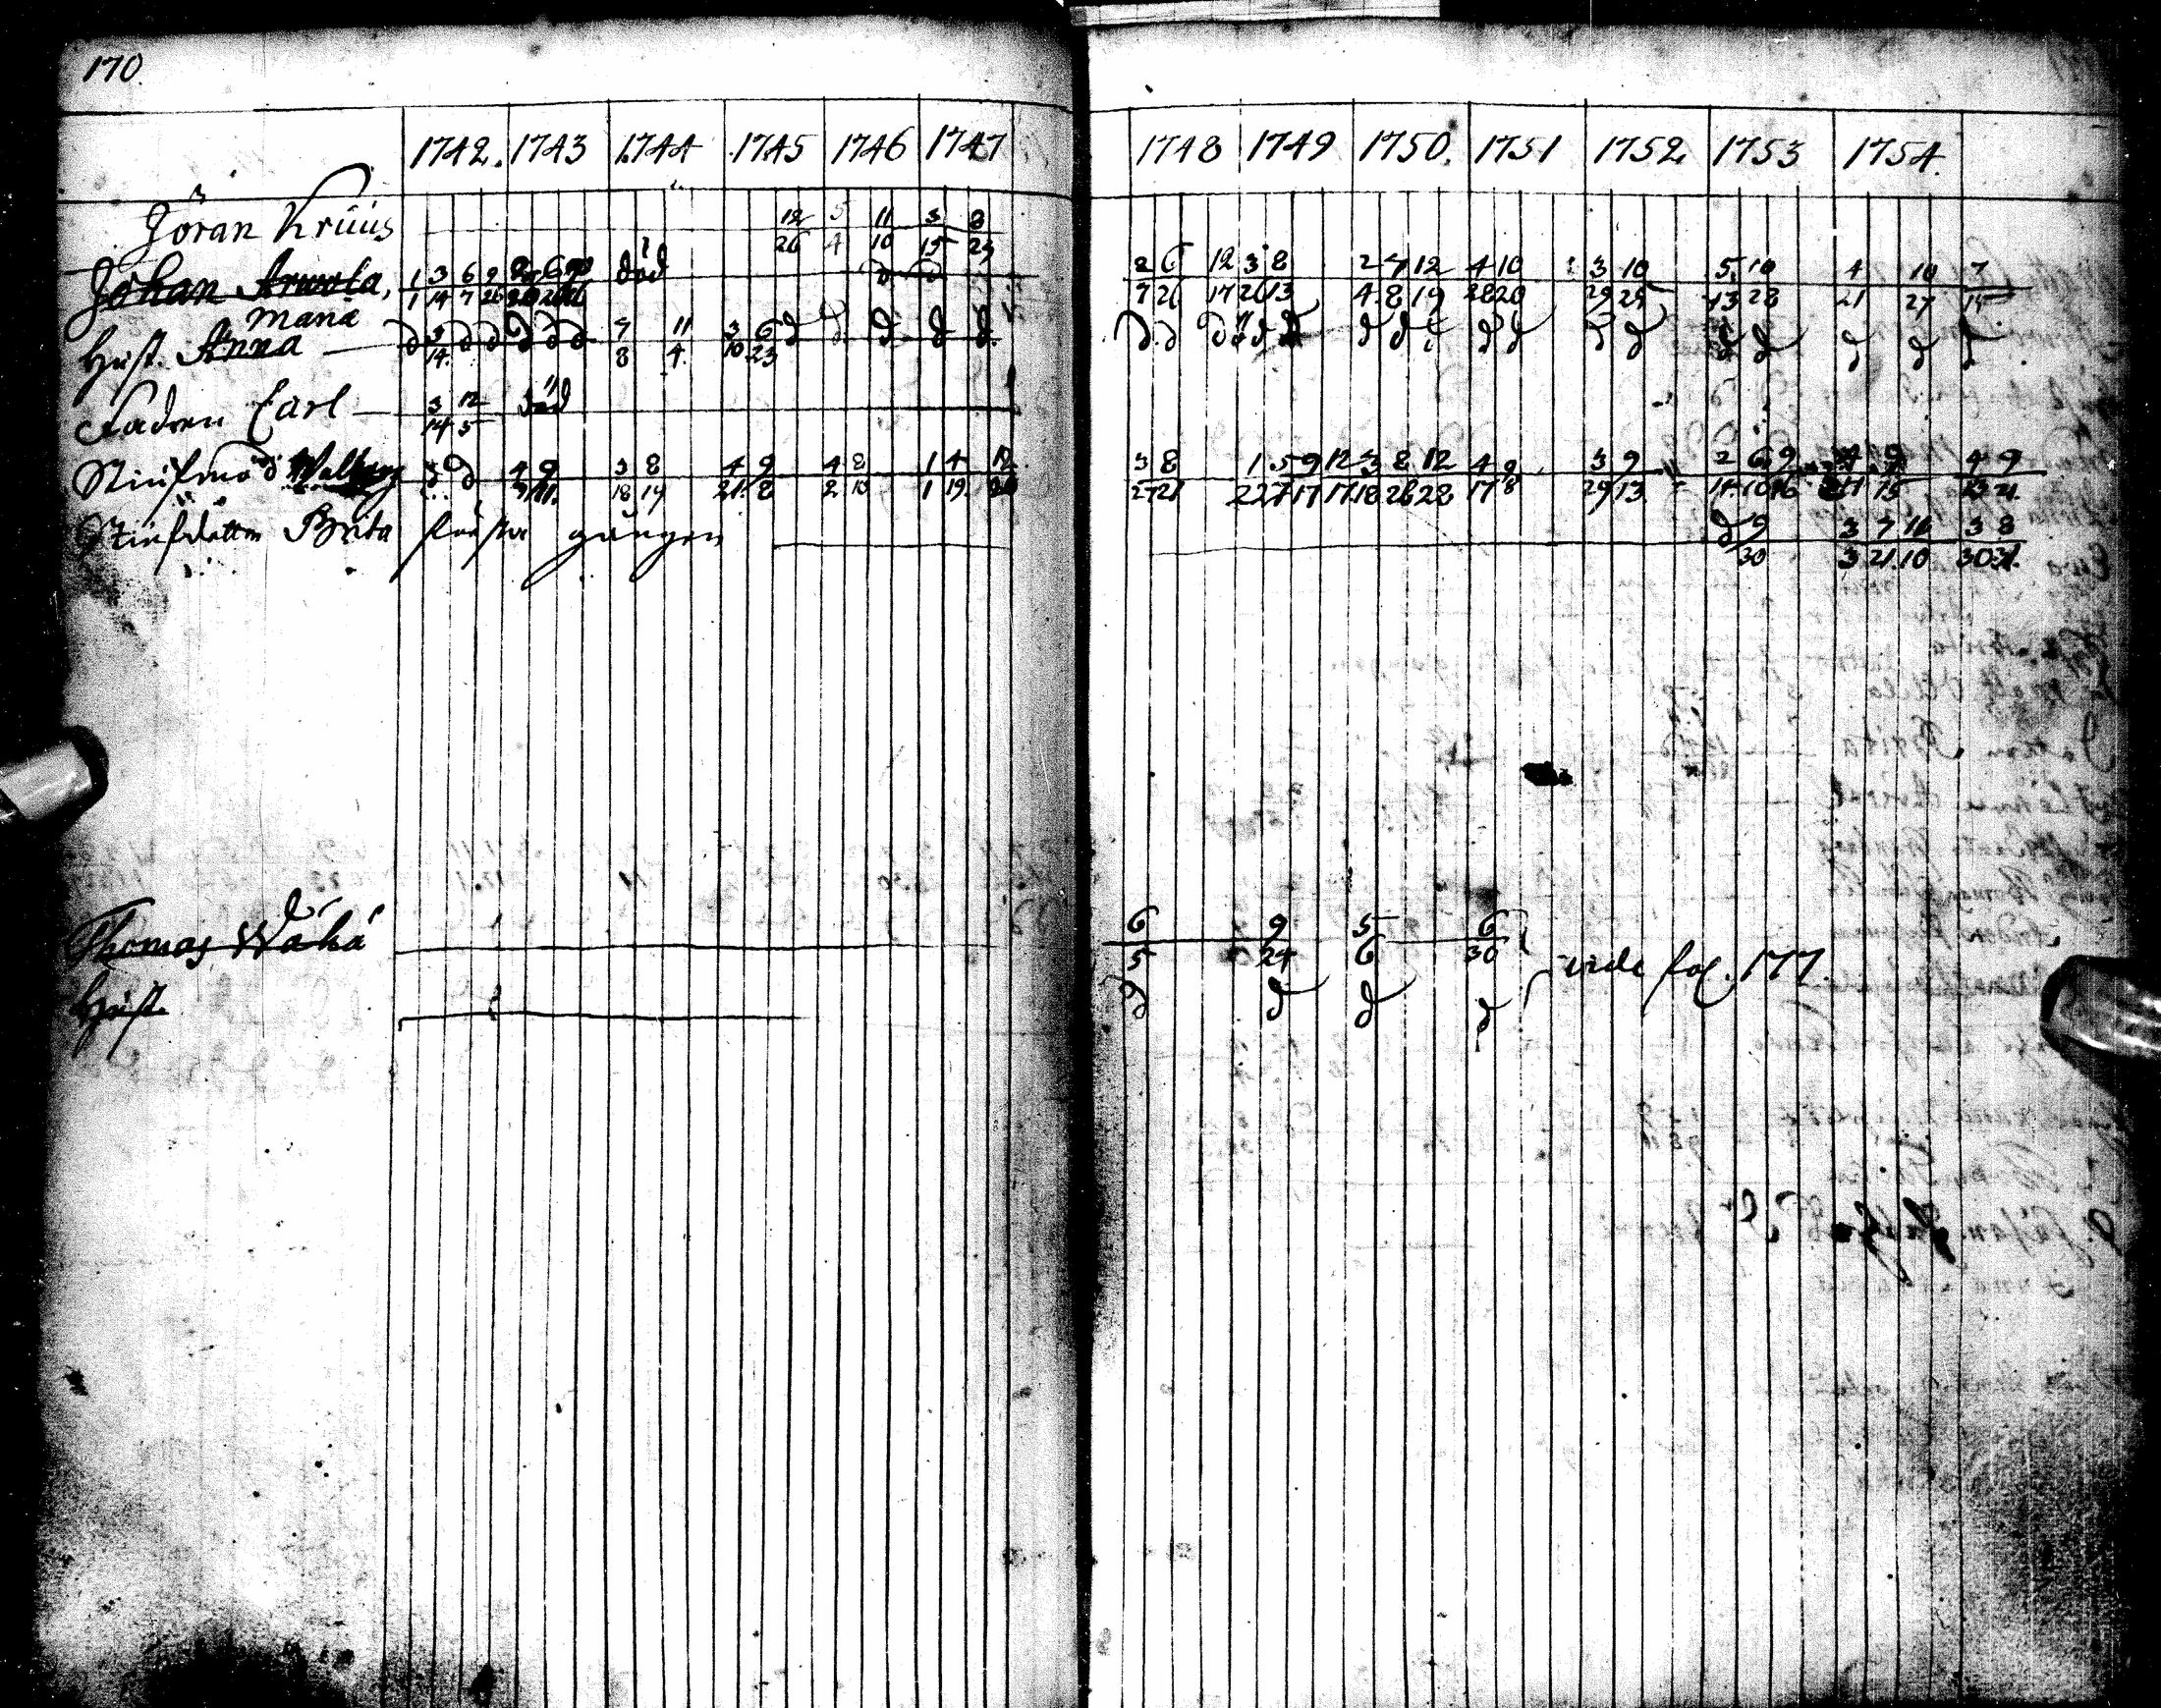 170.
1742. 1743 1744 1745 1746 1747 1748 1749 1750. 1751 1752. 1753 1754.
Jöran Krüüs 12/26 5/4 11/10 3/15 8/29
Johan 1/1 3/14 6/7 9/26 död d d 2/7 6/26 12/17 3/26 8/13 2/4 7/8 12/19 4/28 10/20 3/29 10/25 5/13 10/28 4/21 10/27 7/15
mana
Hust. Anna d 3/14. d d d d d 7/8 11/4. 3/10 6/23 d d d d d d d d d d d d d d d d d d d d d d
Fadren Carl 3/14 12/5 död
Stiufmod Walborg d d 4 9 3/18 8/14 4/21. 9/8 4/2 8/10 1/1 4/19. 12 3/27 8/21 1/2 5/27 9/17 12/17 3/18 8/26 12/28 4/17 9/8 3/29 9/13. 2 6 9 4 9
Stiufdottn Brita första gången d 9/30 3/3 7/21. 10 3/30 8/31.
Thomas Wähä 6/5 9/24 5/6 6/30 vide fol. 177.
Hust. d d d d